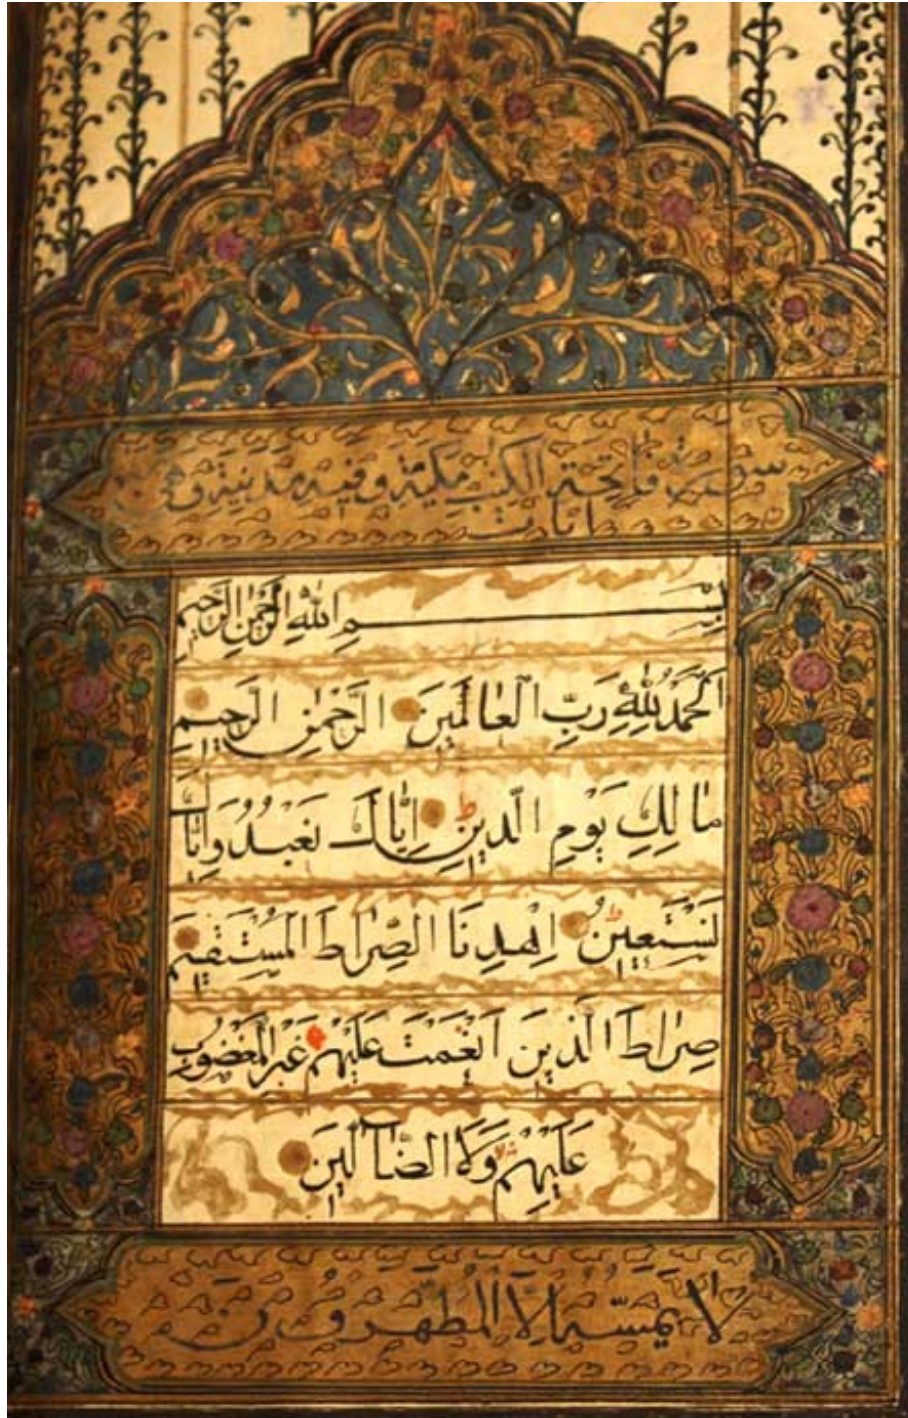 سورة فاتحة الكتب مكية وفيه مدنية وهي
ايات
بِسْــــــمِ اللهِ الرَّحْمٰنِ الرَّحِيمِ
اَلْحَمْدُ لِلّٰهِ رَبِّ الْعَالَمِينَ الرَّحْمٰنِ الرَّحِيمِ
مَالِكِ يَوْمِ الدِّينِ ط اِيَّاكَ نَعْبُدُ وَاِيَّاكَ
نَسْتَعِينُ ط اِهْدِنَا الصِّرَاطَ الْمُسْتَقِيمَ
صِرَاطَ الَّذِينَ اَنْعَمْتَ عَلَيْهِمْ غَيْرِ الْمَغْضُوبِ
عَلَيْهِمْ وَلَا الضَّآلِّينَ
لَا يَمَسُّهُ اِلَّا الْمُطَهَّرُونَ